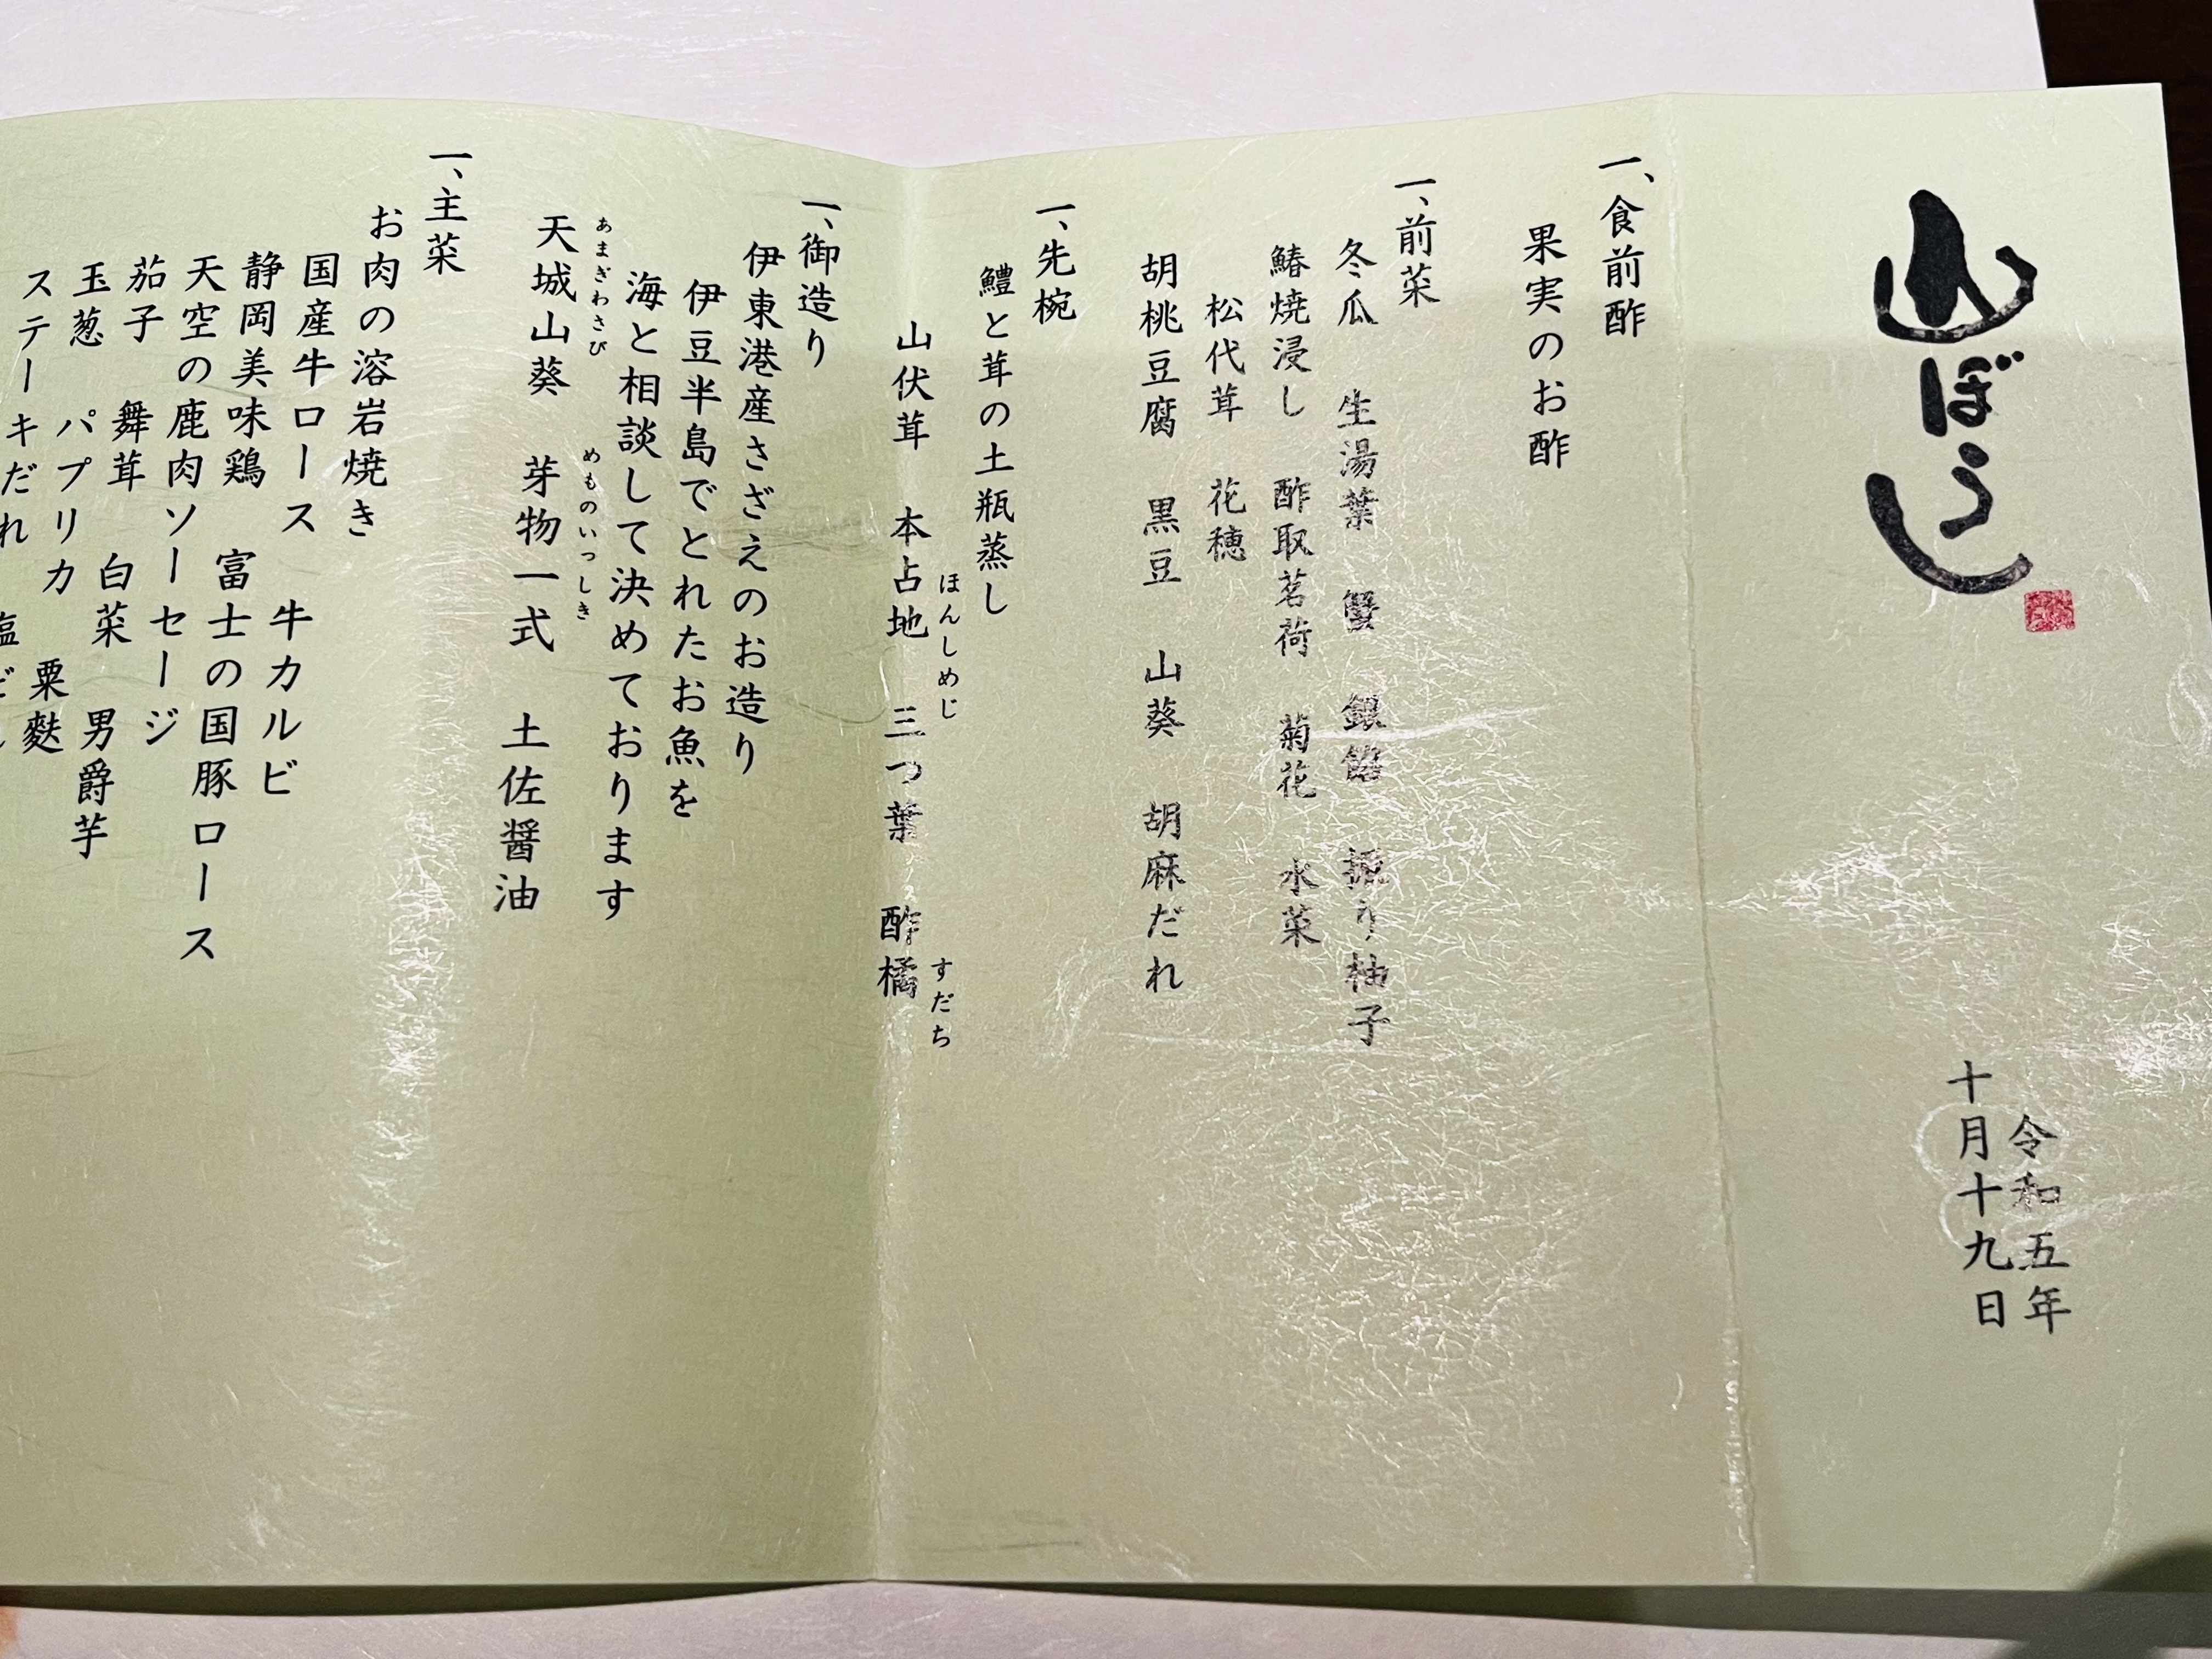 山ぼうし
令和五年
十月十九日
一、食前酢
果実のお酢
一、前菜
冬瓜　生湯葉　蟹　銀餡　振り柚子
鰆焼浸し　酢取茗荷　菊花　水菜
松代茸　花穂
胡桃豆腐　黒豆　山葵　胡麻だれ
一、先椀
鱧と茸の土瓶蒸し
ほんしめじ　すだち
山伏茸　本占地　三つ葉　酢橘
一、御造り
伊東港産さざえのお造り
伊豆半島でとれたお魚を
海と相談して決めております
あまぎわさび　めものいっしき
天城山葵　芽物一式　土佐醤油
一、主菜
お肉の溶岩焼き
国産牛ロース　牛カルビ
静岡美味鶏　富士の国豚ロース
天空の鹿肉ソーセージ
茄子　舞茸　白菜　男爵芋
玉葱　パプリカ　粟麩
ステーキだれ